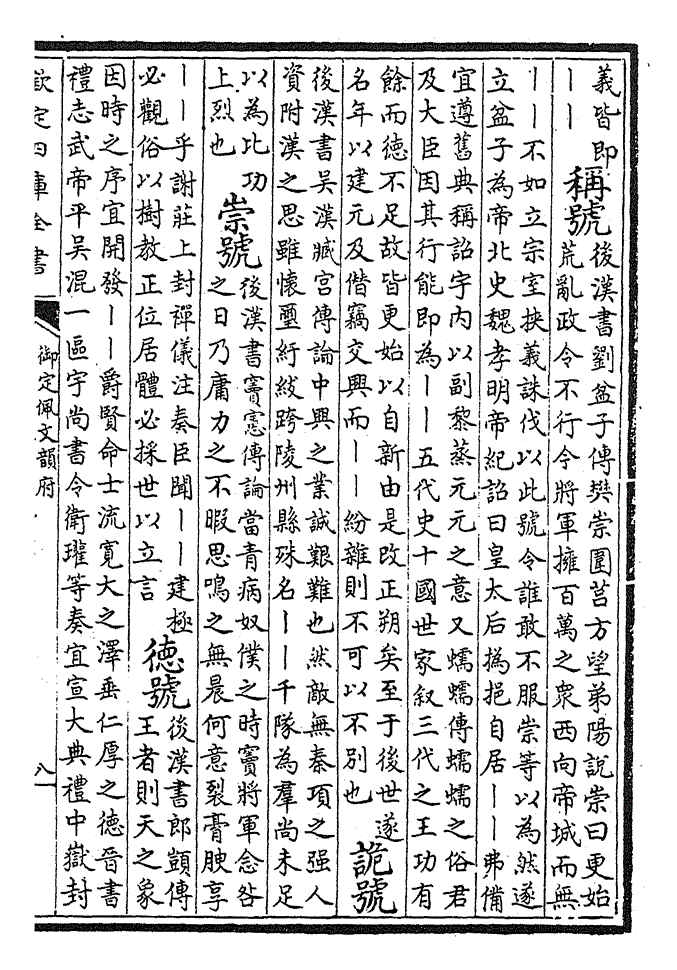 義皆即
——
稱號
後漢書劉盆子傳樊崇圍莒方望弟陽說崇曰更始
荒亂政令不行令將軍擁百萬之衆西向帝城而無
——不如立宗室挾義誅伐以此號令誰敢不服崇等以為然遂
立盆子為帝北史魏孝明帝紀詔曰皇太后撝挹自居——弗備
宜遵舊典稱詔宇內以副黎蒸元元之意又蠕蠕傳蠕蠕之俗君
及大臣因其行能即為——五代史十國世家叙三代之王功有
餘而德不足故皆更始以自新由是改正朔矣至于後世遂
名年以建元及僭竊交興而——紛雜則不可以不別也
詭號
後漢書吳漢臧宮傳論中興之業誠艱難也然敵無秦項之强人
資附漢之思雖懷璽紆紱跨陵州縣殊名——千隊為羣尚未足
以為比功
上烈也
崇號
後漢書竇憲傳論當青病奴僕之時竇將軍念咎
之日乃庸力之不暇思鳴之無晨何意裂膏腴享
——乎謝莊上封禪儀注奏臣聞——建極
必觀俗以樹教正位居體必採世以立言
德號
後漢書郎顗傳
王者則天之象
因時之序宜開發——爵賢命士流寬大之澤垂仁厚之德晉書
禮志武帝平吳混一區宇尚書令衛瓘等奏宜宣大典禮中嶽封
欽定四庫全書
御定佩文韻府
八